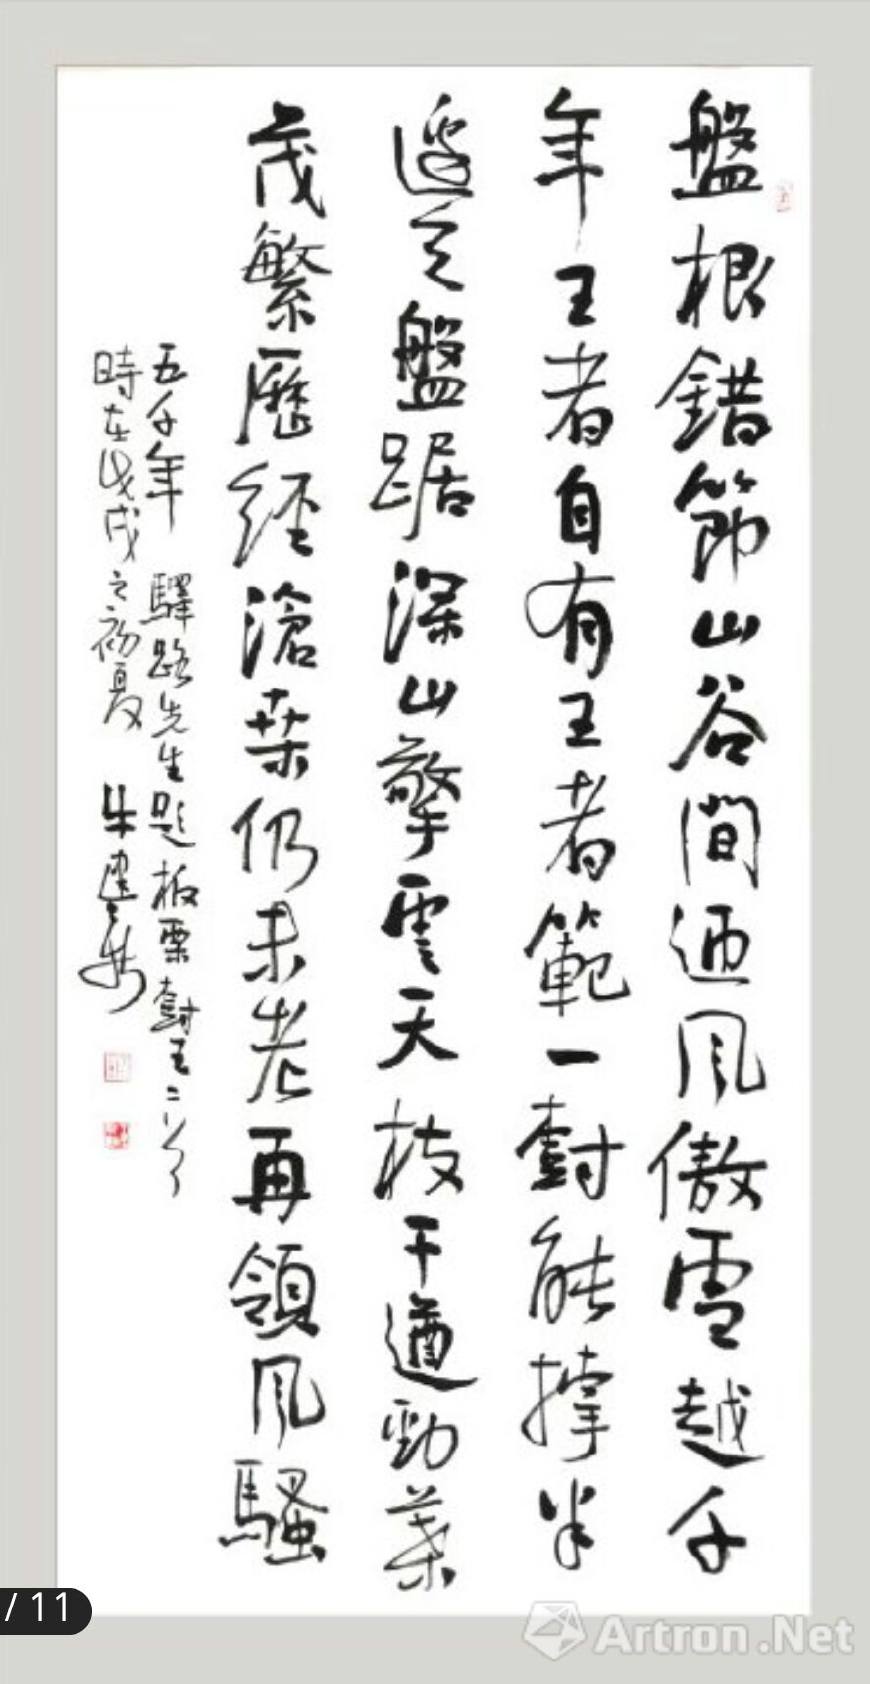 盤根錯節山谷間迎風傲雪越千
年王者自有王者範一樹能撐半
邊天盤踞深山擎雲天枝干遒勁葉
茂繁歷經滄桑仍未老再領風騷
五千年 驛路先生題板栗樹王二首
時在戊戌之初夏
/ 11
Artron.Net